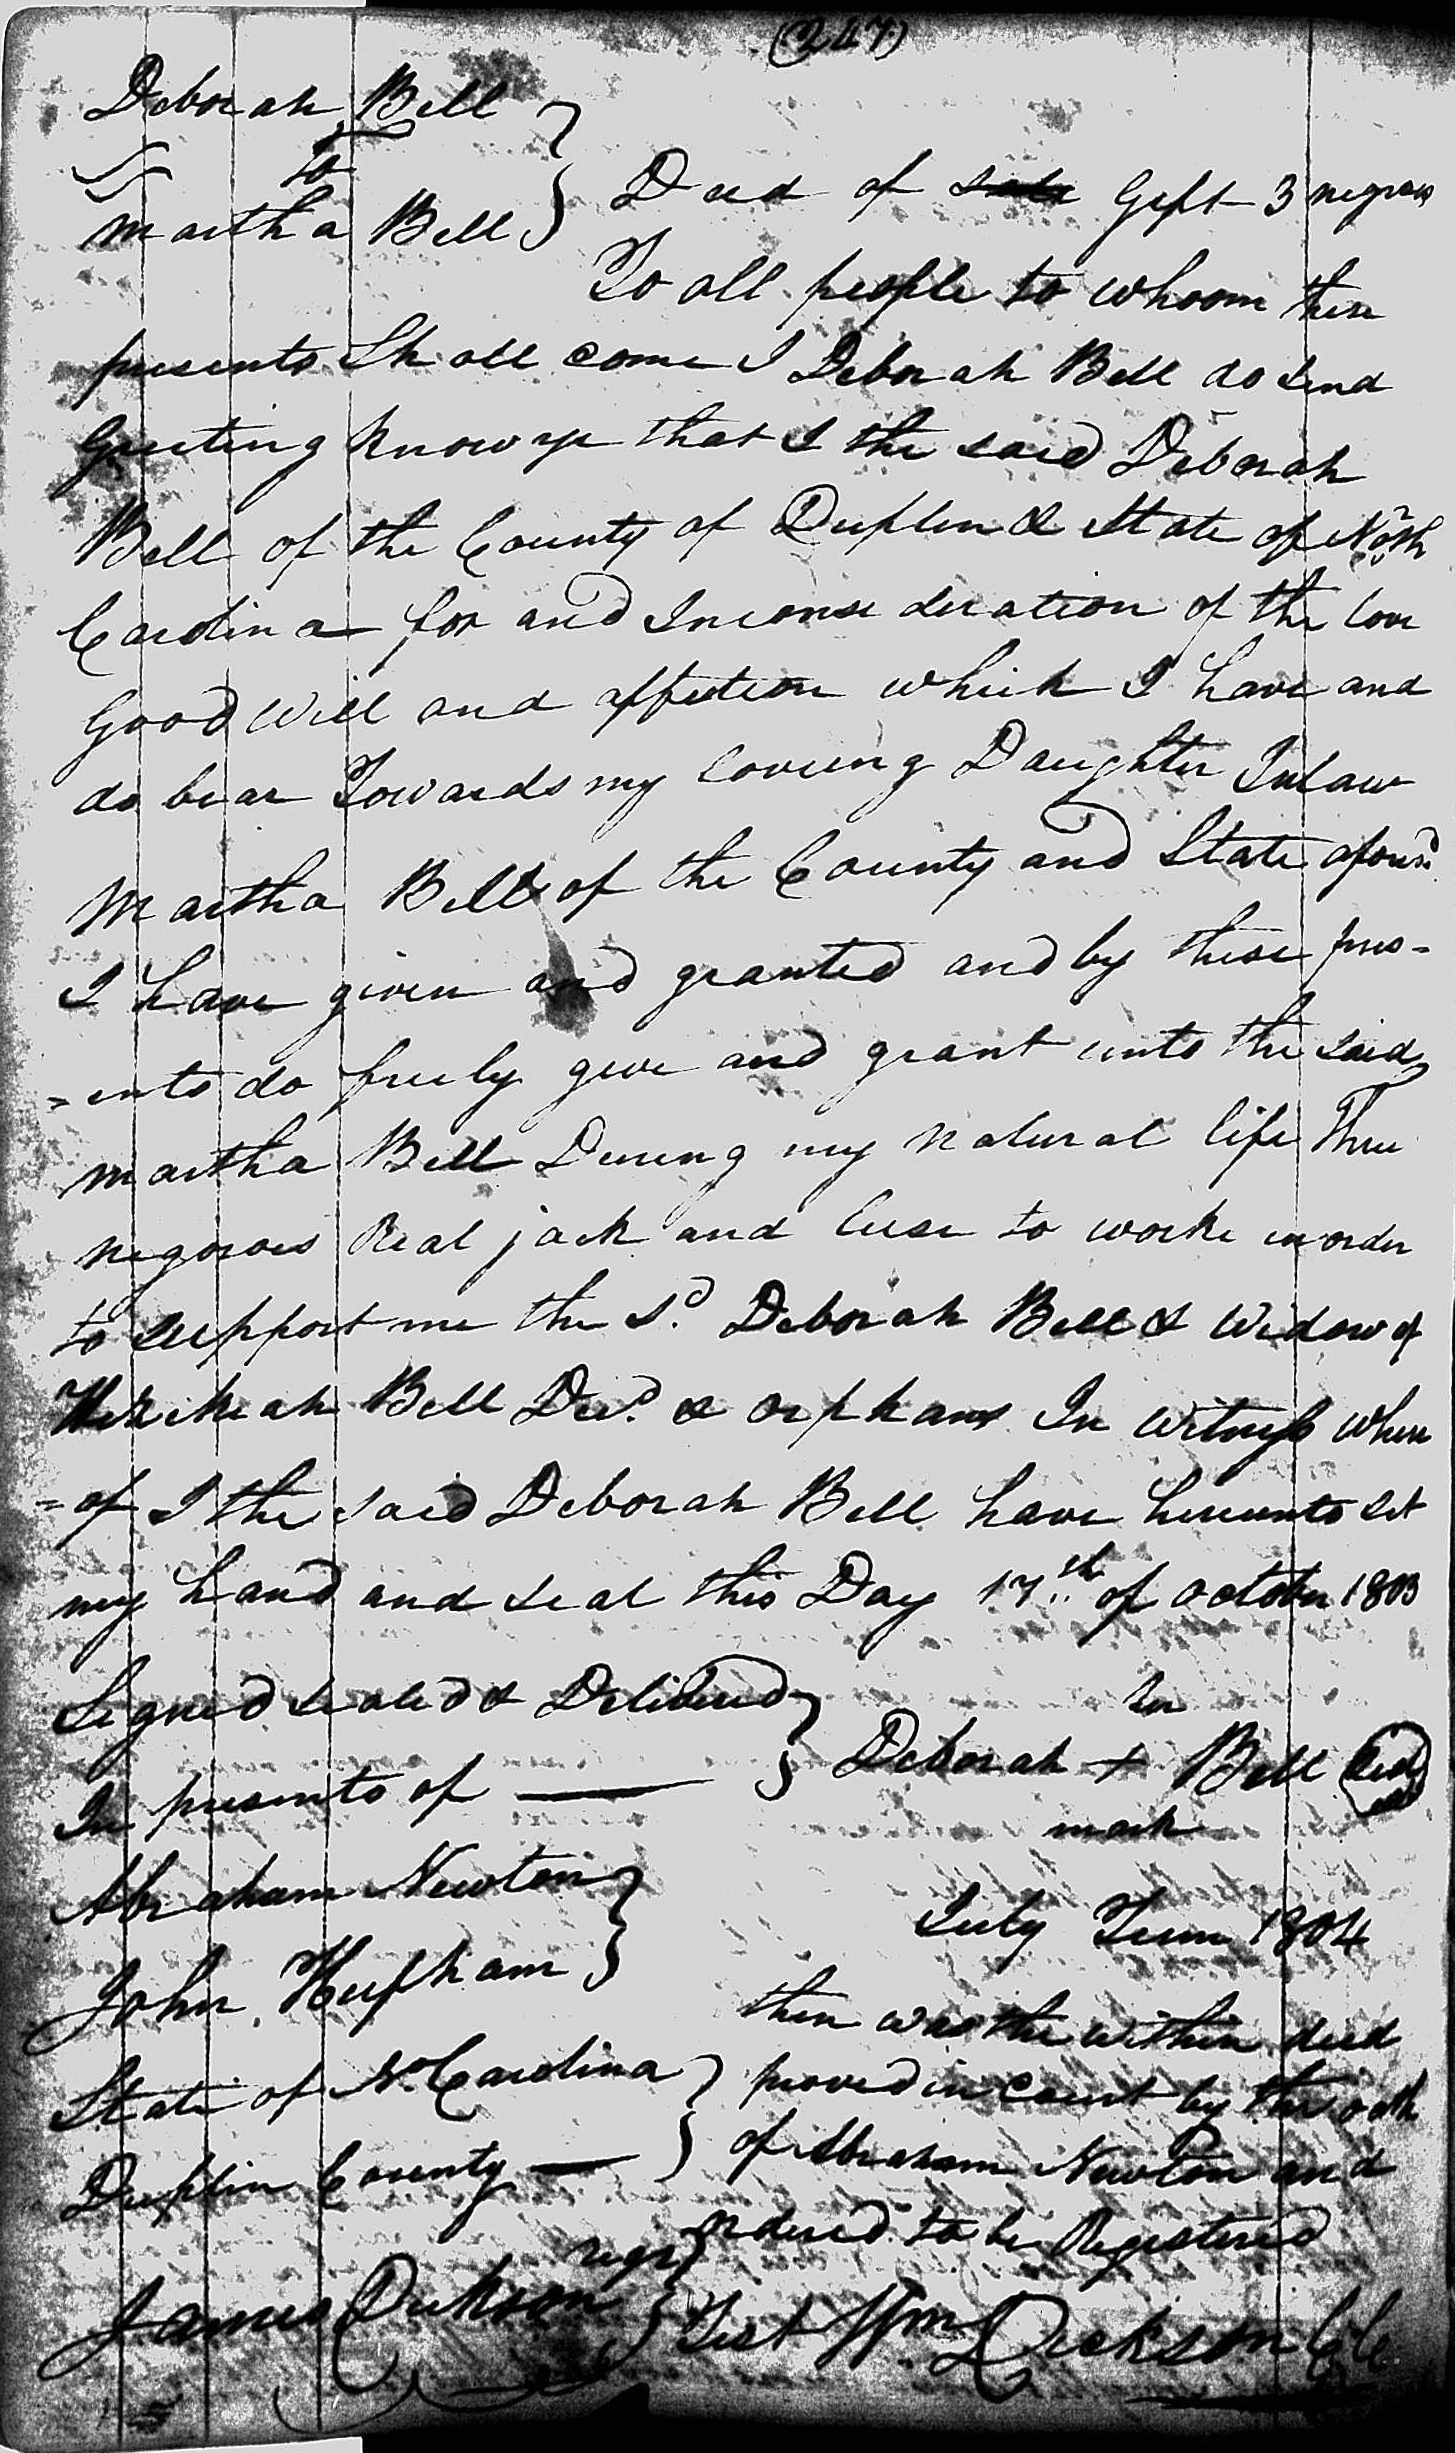 (247)
Deborah Bell
to
Martha Bell
Deed of sale Gift 3 negroes
To all people to whoom these
presents Shall come I Deborah Bell do Send
Greeting Know ye that I the said Deborah
Bell of the County of Duplin & State of North
Carolina for and Inconsideration of the love
Good Will and affection which I have and
do bear Towards my loveing Daughter Inlaw
Martha Bell of the County and State aforesd
I have given and granted and by these pres-
=ents do freely give and grant unto the said
Martha Bell During my natural life Three
negroes jack and to worke in order
to support me the Sd. Deborah Bell & Widow of
Hezekeah Bell Decd. & orphans In Witness where
=of I the said Deborah Bell have hereunto set
my hand and seal this Day 17th of october 1803
Signed sealed & Delivered
In presents of
her
Deborah + Bell Seal
mark
Abraham Newton
John Hufham
July Term 1804
State of N. Carolina
Duplin County
then was the within deed
proved in court by the oath
of Abraham Newton and
ordered to be Registered
James Dickson regr
Test Wm Dickson CC